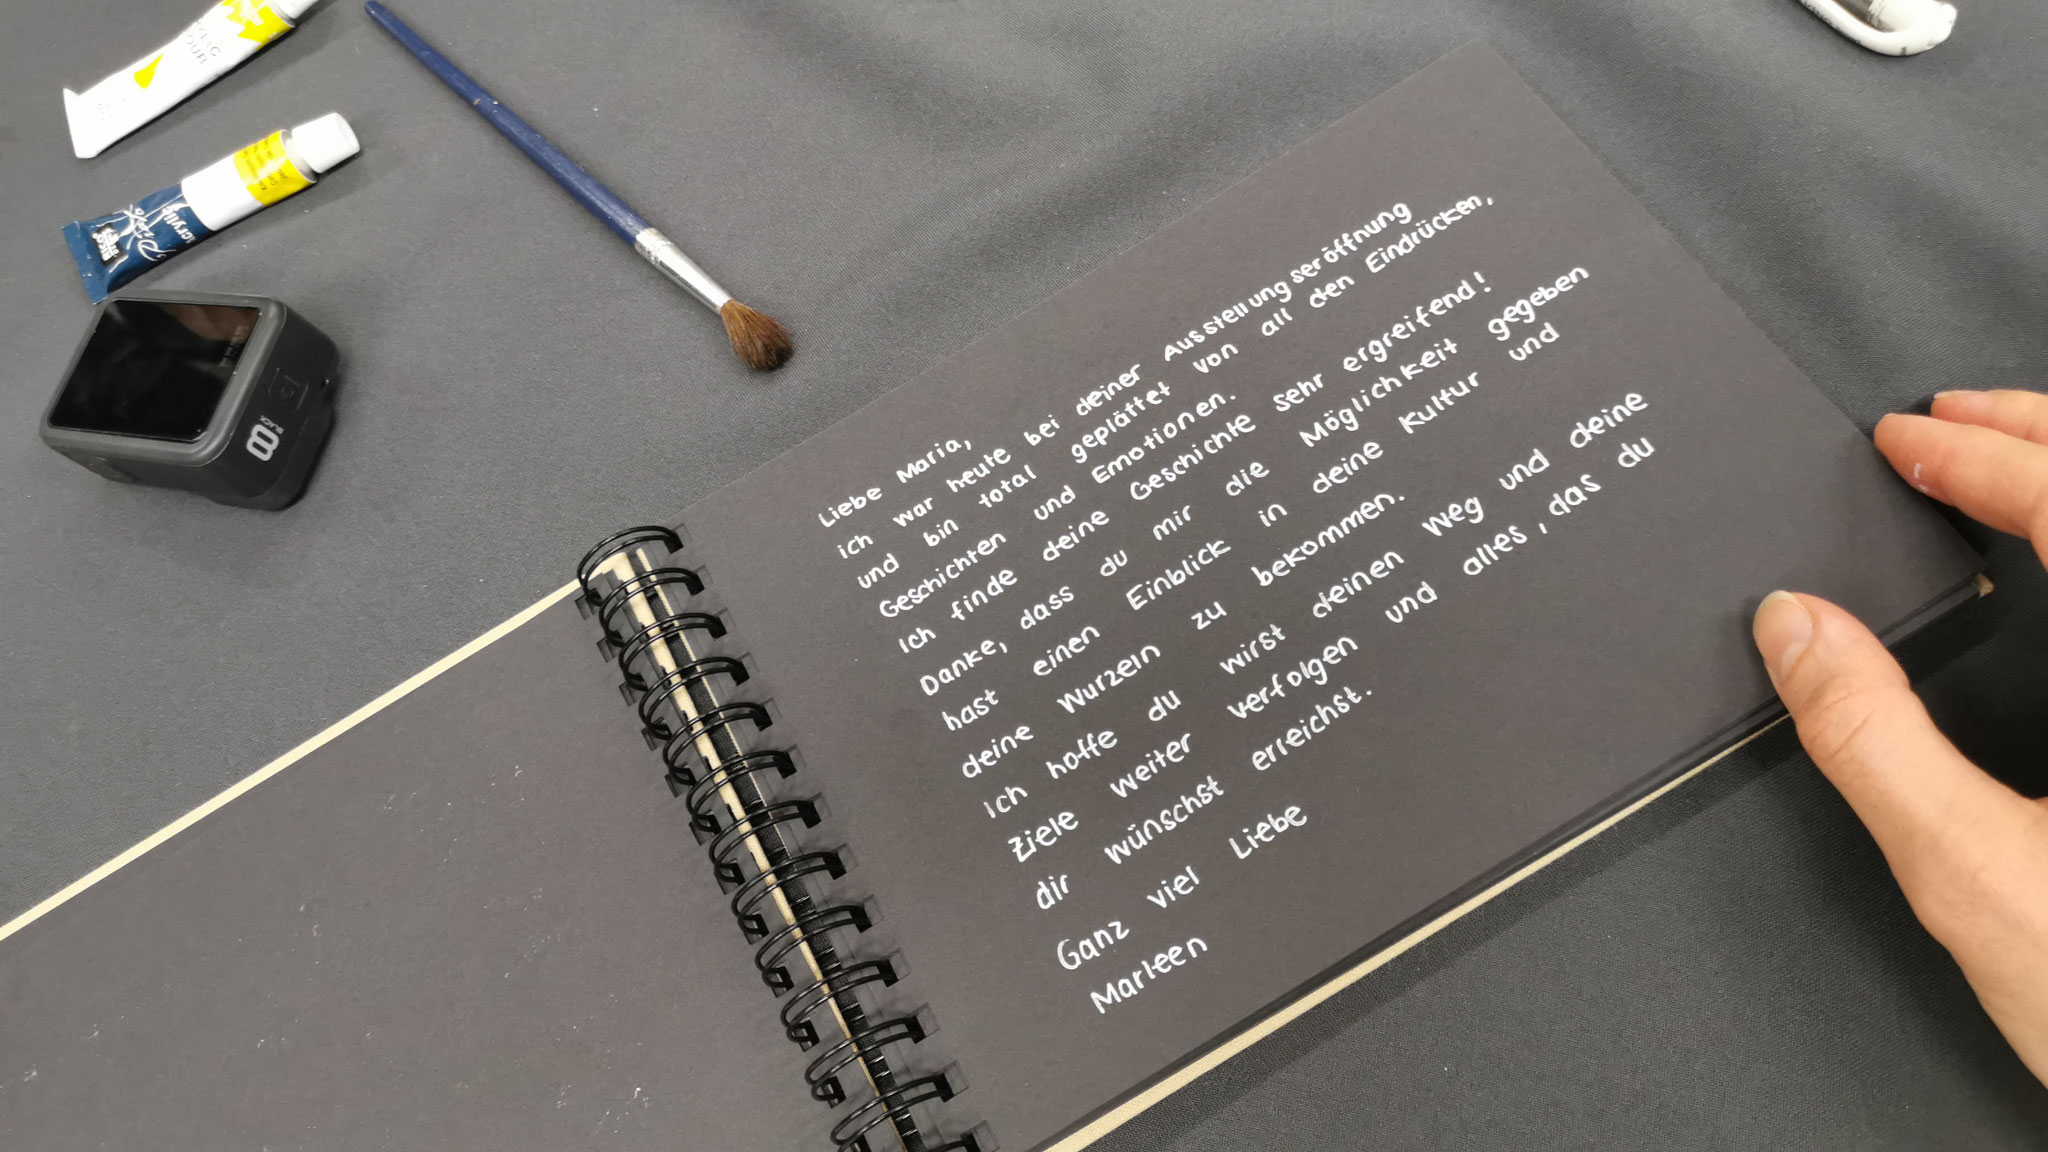 Liebe Maria,
ich war heute bei deiner Ausstellungseröffnung
und bin total geplättet von all den Eindrücken,
Geschichten und Emotionen.
Ich finde deine Geschichte sehr ergreifend!
Danke, dass du mir die Möglichkeit gegeben
hast einen Einblick in deine Kultur und
deine Wurzeln zu bekommen.
Ich hoffe du wirst deinen Weg und deine
Ziele weiter verfolgen und alles, das du
dir wünschst erreichst.
Ganz viel Liebe
Marleen
8
BLACK